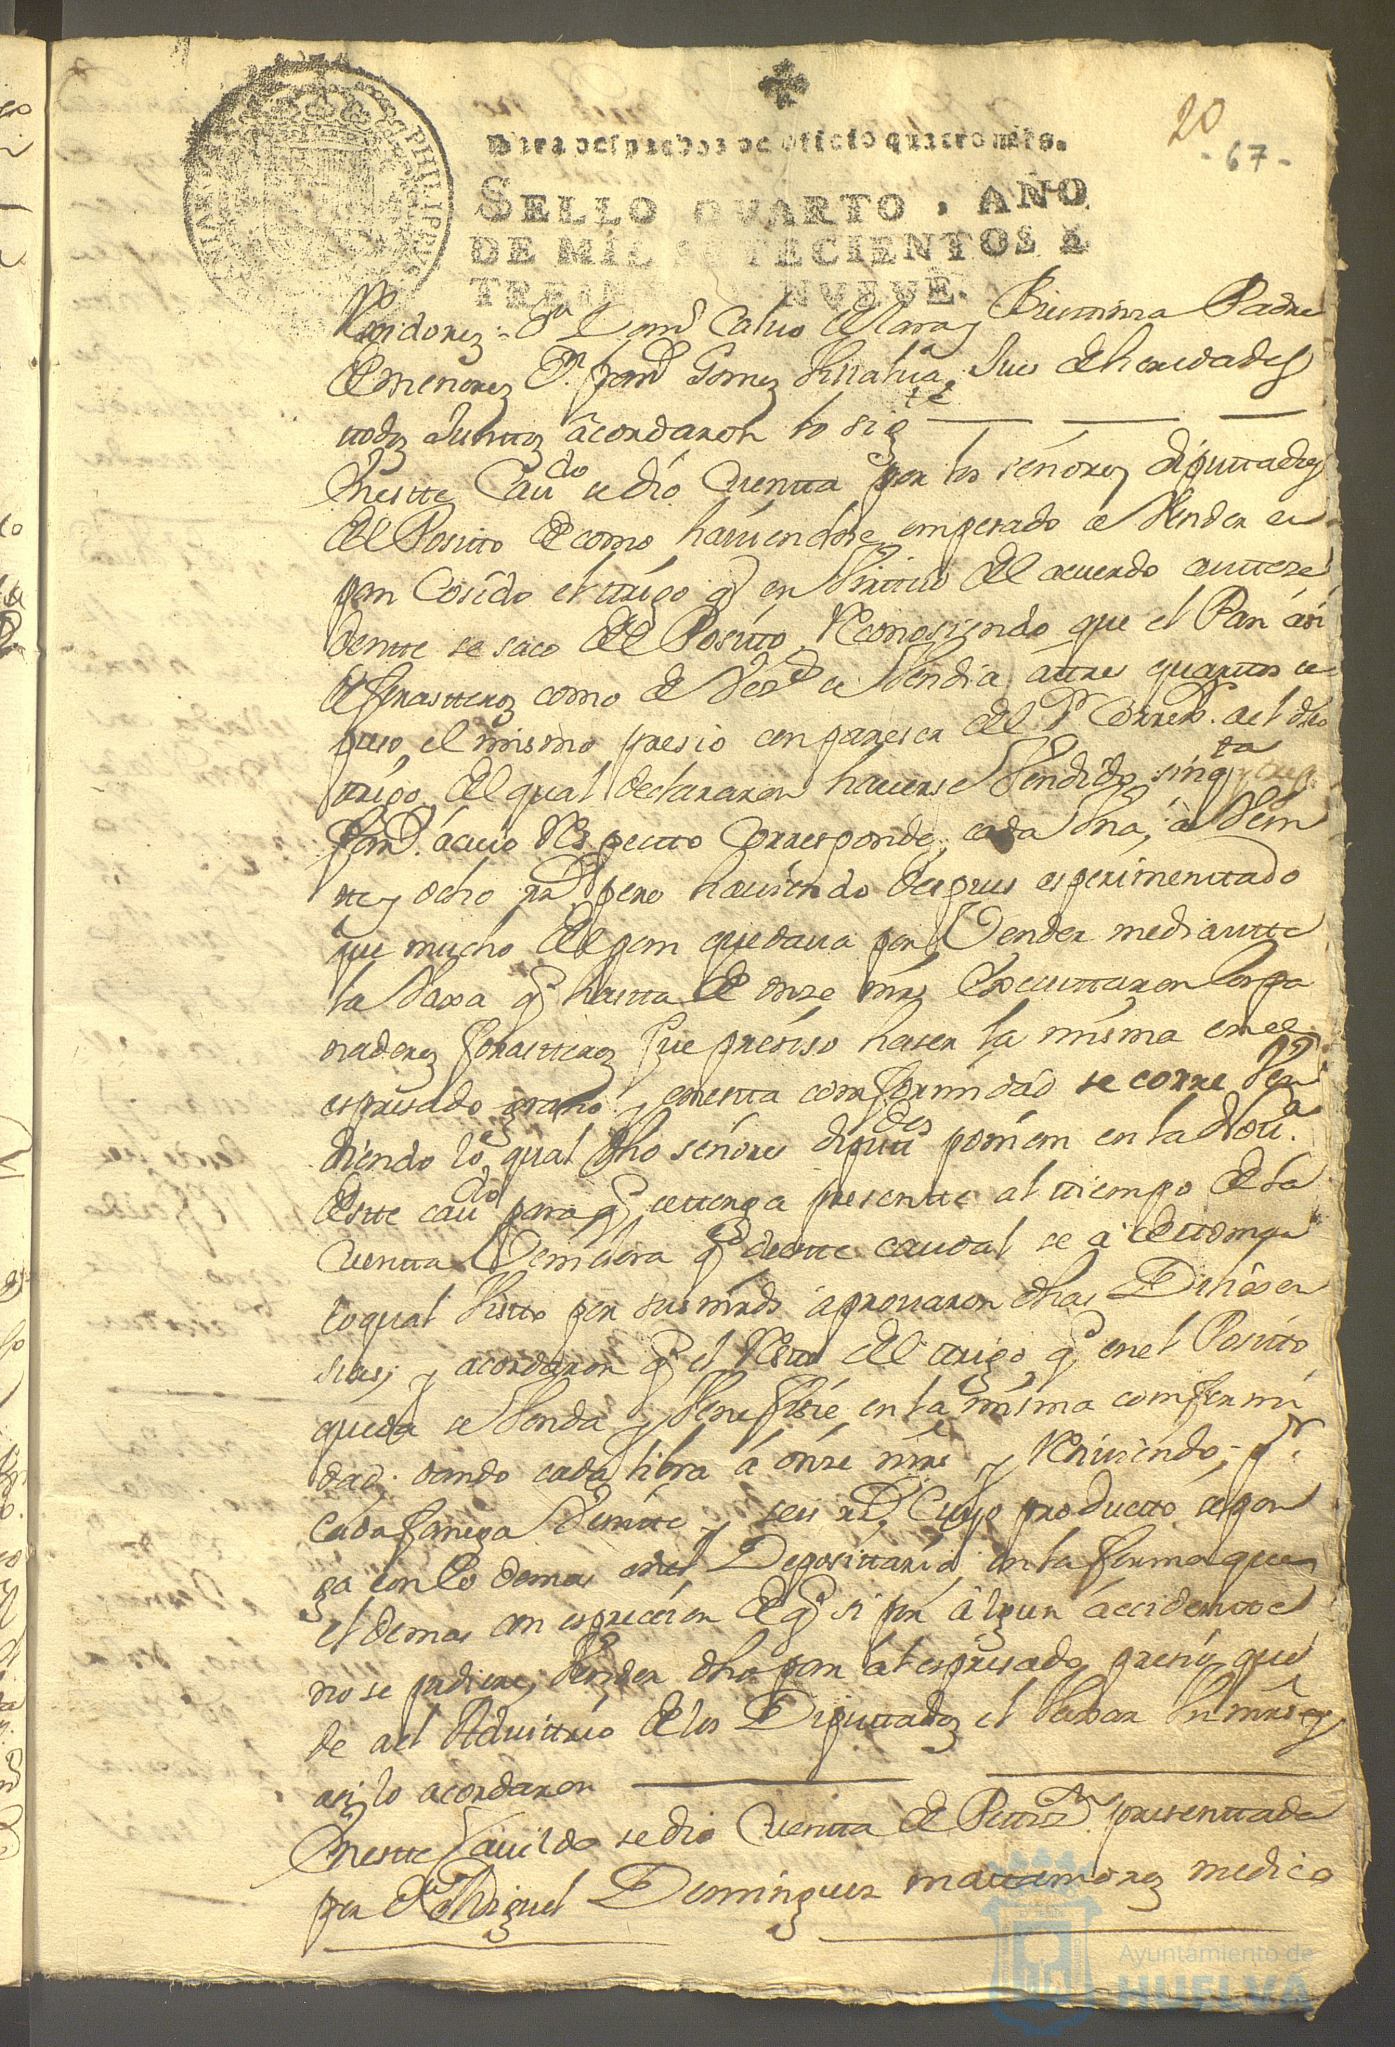 20
- 67 -
Para despachos de oficio quatro mrs.
SELLO QVARTO, AÑO
DE MIL SETECIENTOS Y
TREINTA Y NVEVE.
PHILIPPUS
Rexidores: Dn Domo Calvo Padre
de menores Dn franco Gomez Juez de heredades
ttodos Junttos acordaron lo sigte
Enestte Caudo se dio Cuentta por los señores diputtados
del Positto de como haviendose empesado a Vender en
pan Cosido el ttrigo q en Virttud del acuerdo antteze
dentte se saco del Positto, Reconosiendo que el Pan asi
de forastteros como de Vezos se Vendia a ttres quarttos se
puso el mismo presio con pareser del Sr Correxr. al dho
ttrigo, del qual declararon haverse Vendido sinqta y tres
fans. a cuio Respectto Corresponde, cada Una, a Vein
tte y ocho rrs. pero haviendo despues esperimenttado
que mucho del pan quedava por Vender mediantte
la Vaxa q hastta de onze mrs Executtaron los pa
naderos forastteros fue presiso haser la misma en el
espresado grano y en estta comformidad se corre Ven
diendo lo qual dhos señores diputdos ponian en la Notta.
de estte caudo para q se ttenga presentte al ttiempo de la
Cuentta Venidera q de estte caudal se a de ttomar
lo qual Vistto por sus mrds aprovaron dhas Dilixen
sias; y acordaron q el Resto del ttrigo q en el Positto
queda se Venda y Venefisie en la misma comformi
dad, dando cada libra a onze mrs y Reciviendo, pr.
cada fanega Veintte y seis rrs. Cuyo productto se pon
ga con lo demas en el Deposittario en la forma que
el demas con espresion de q si por algun accidentte
no se pudiere Vender dho pan al espresado presio, que
de al Advittrio de los Diputtados el Vaxar Un mrs y
asi lo acordaron
Enestte Cauildo se dio Cuentta de Pettizn presenttada
por Dn Miguel Dominguez mattamoros medico
Ayuntamiento de
HUELVA